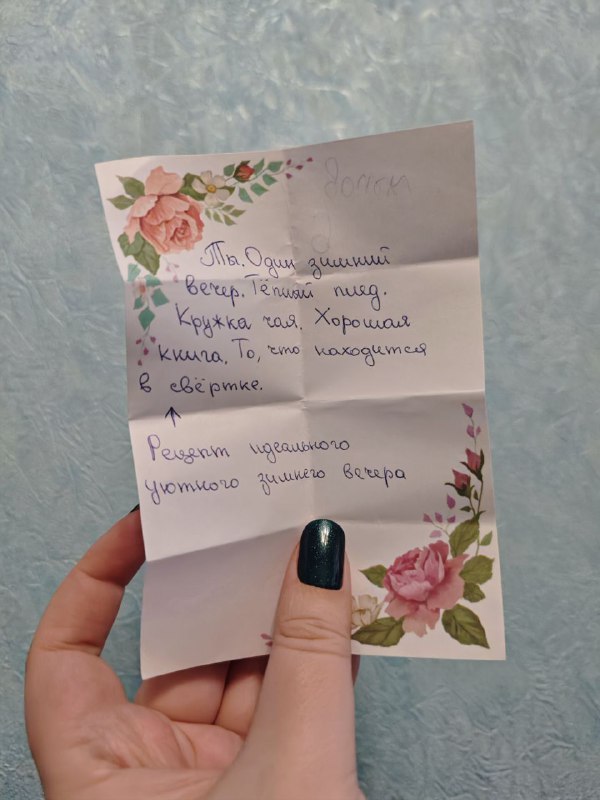 Ты. Один зимний
вечер. Тёплый плед.
Кружка чая. Хорошая
книга. То, что находится
в свёртке.
Рецепт идеального
уютного зимнего вечера